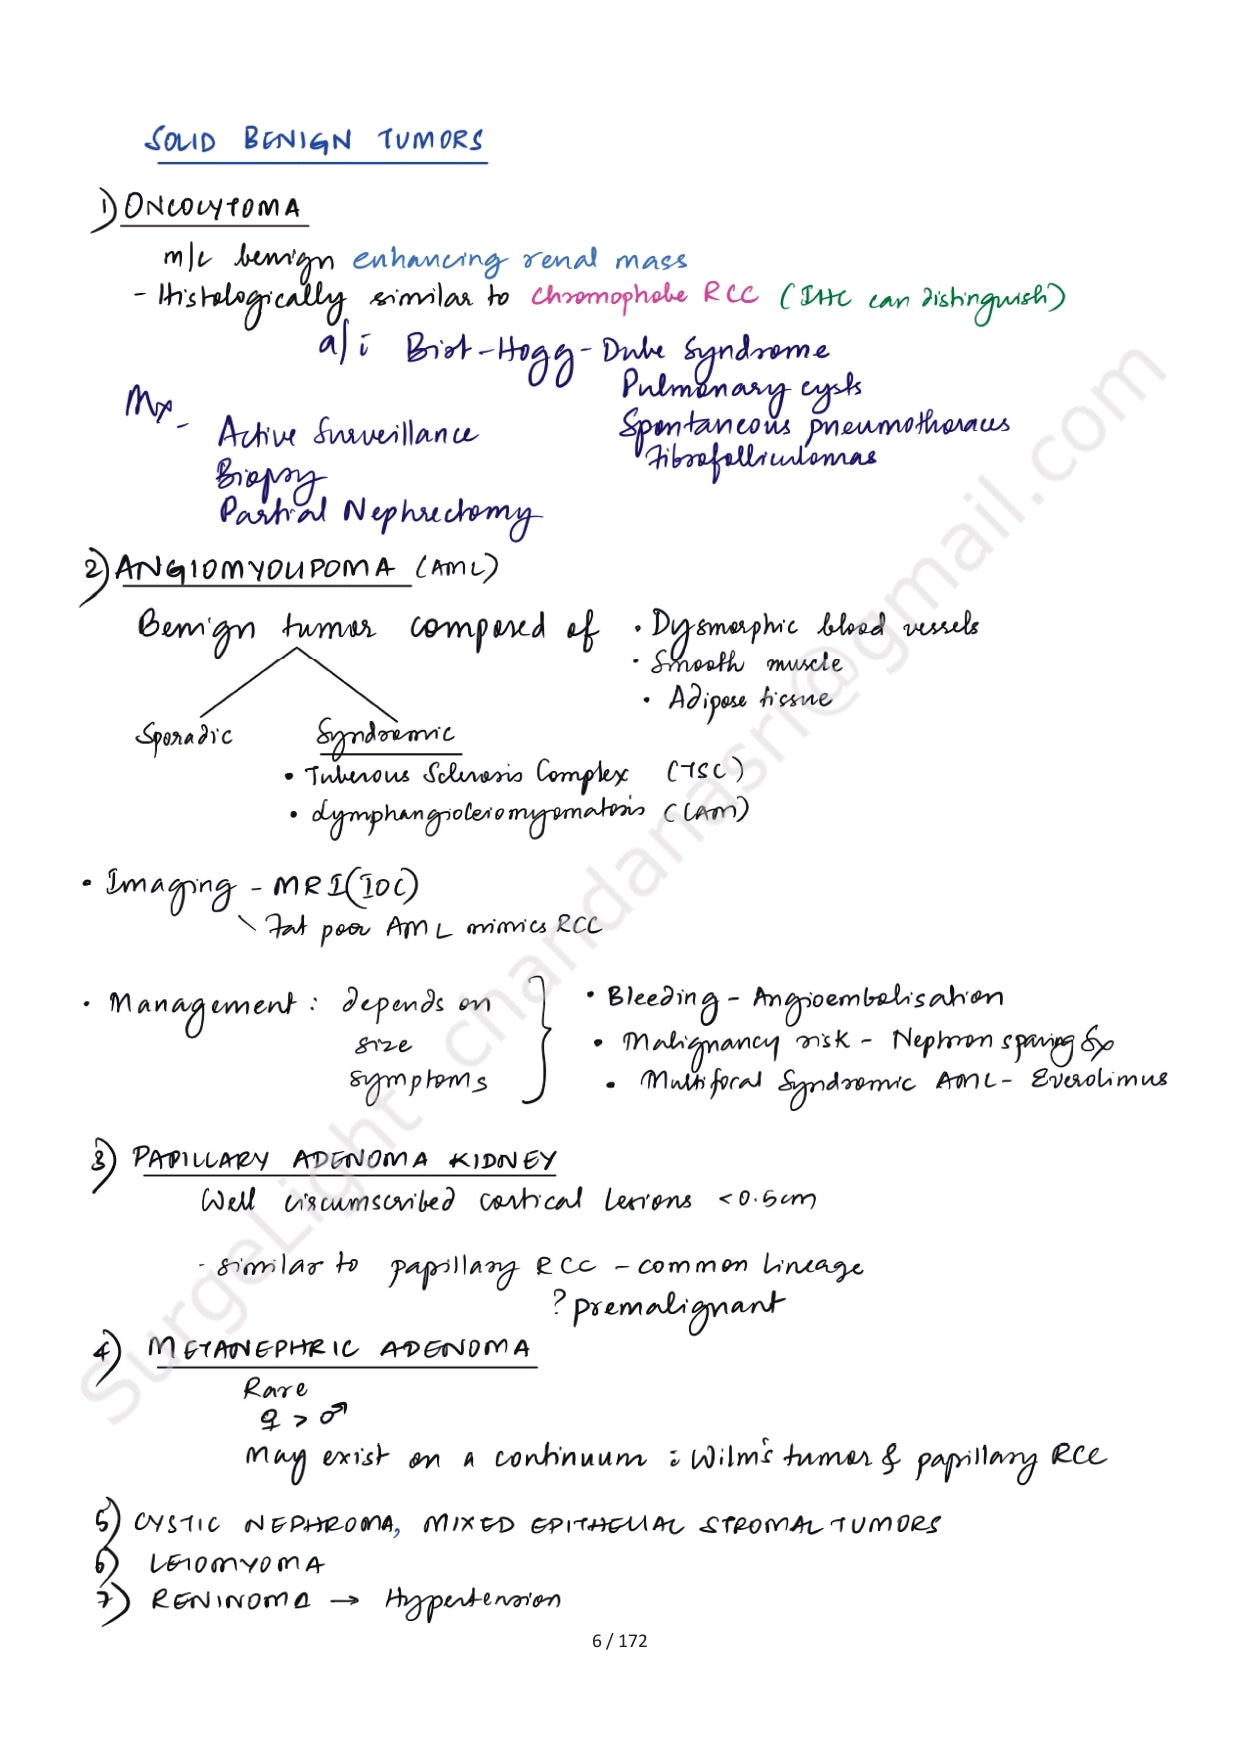 SOLID BENIGN TUMORS
1) ONCOCYTOMA
m/c benign enhancing renal mass
- Histologically similar to chromophobe RCC (IHC can distinguish)
a/i Birt-Hogg-Dube Syndrome
Pulmonary cysts
Mx -
Active Surveillance
Spontaneous pneumothoraces
Fibrofolliculomas
Biopsy
Partial Nephrectomy
2) ANGIOMYOLIPOMA (AML)
Benign tumor composed of • Dysmorphic blood vessels
• Smooth muscle
• Adipose tissue
Sporadic Syndromic
• Tuberous Sclerosis Complex (TSC)
• Lymphangioleiomyomatosis (LAM)
• Imaging - MRI (IOC)
Fat poor AML mimics RCC
• Management : depends on
size
symptoms
• Bleeding - Angioembolisation
• Malignancy risk - Nephron sparing Sx
• Multifocal Syndromic AML - Everolimus
3) PAPILLARY ADENOMA KIDNEY
Well circumscribed cortical lesions <0.5cm
- similar to papillary RCC - common lineage
? premalignant
4) METANEPHRIC ADENOMA
Rare
♀ > ♂
May exist on a continuum i Wilm's tumor & papillary RCC
5) CYSTIC NEPHROMA, MIXED EPITHELIAL STROMAL TUMORS
6) LEIOMYOMA
7) RENINOMA → Hypertension
6 / 172
SurgeLight chandanasri@gmail.com